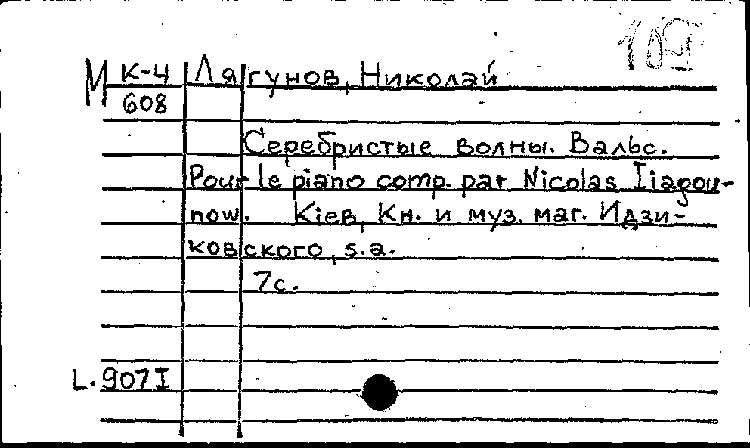 М К-4 Лягунов, Николай
608
Серебристые волны. Вальс.
Pour le piano comp. par Nicolas Iiagou-
now. Kiев, Кн. и муз. маг. Идзи-
ковского, s.a.
7с.
L.907I